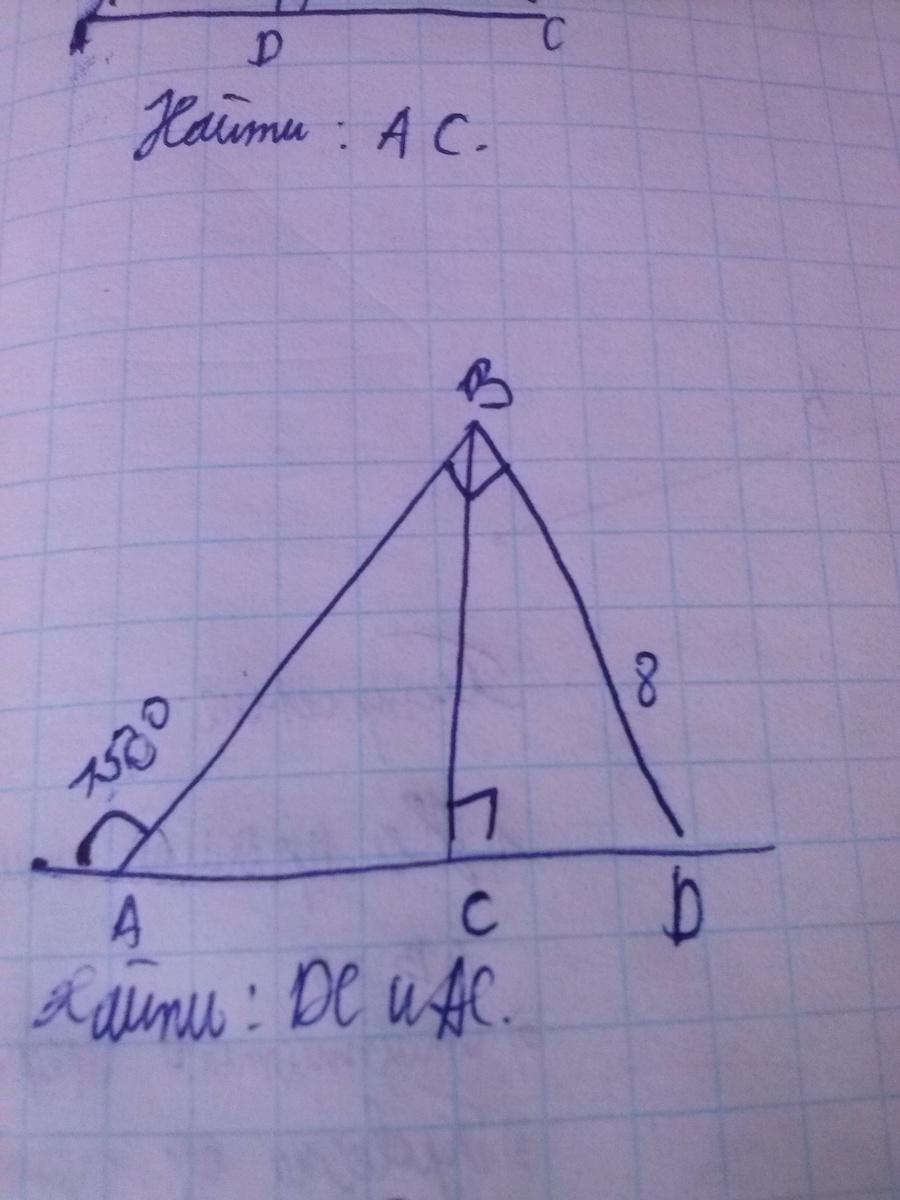 D C
Найти: AC.
B
8
A C D
Найти: DC и AC.